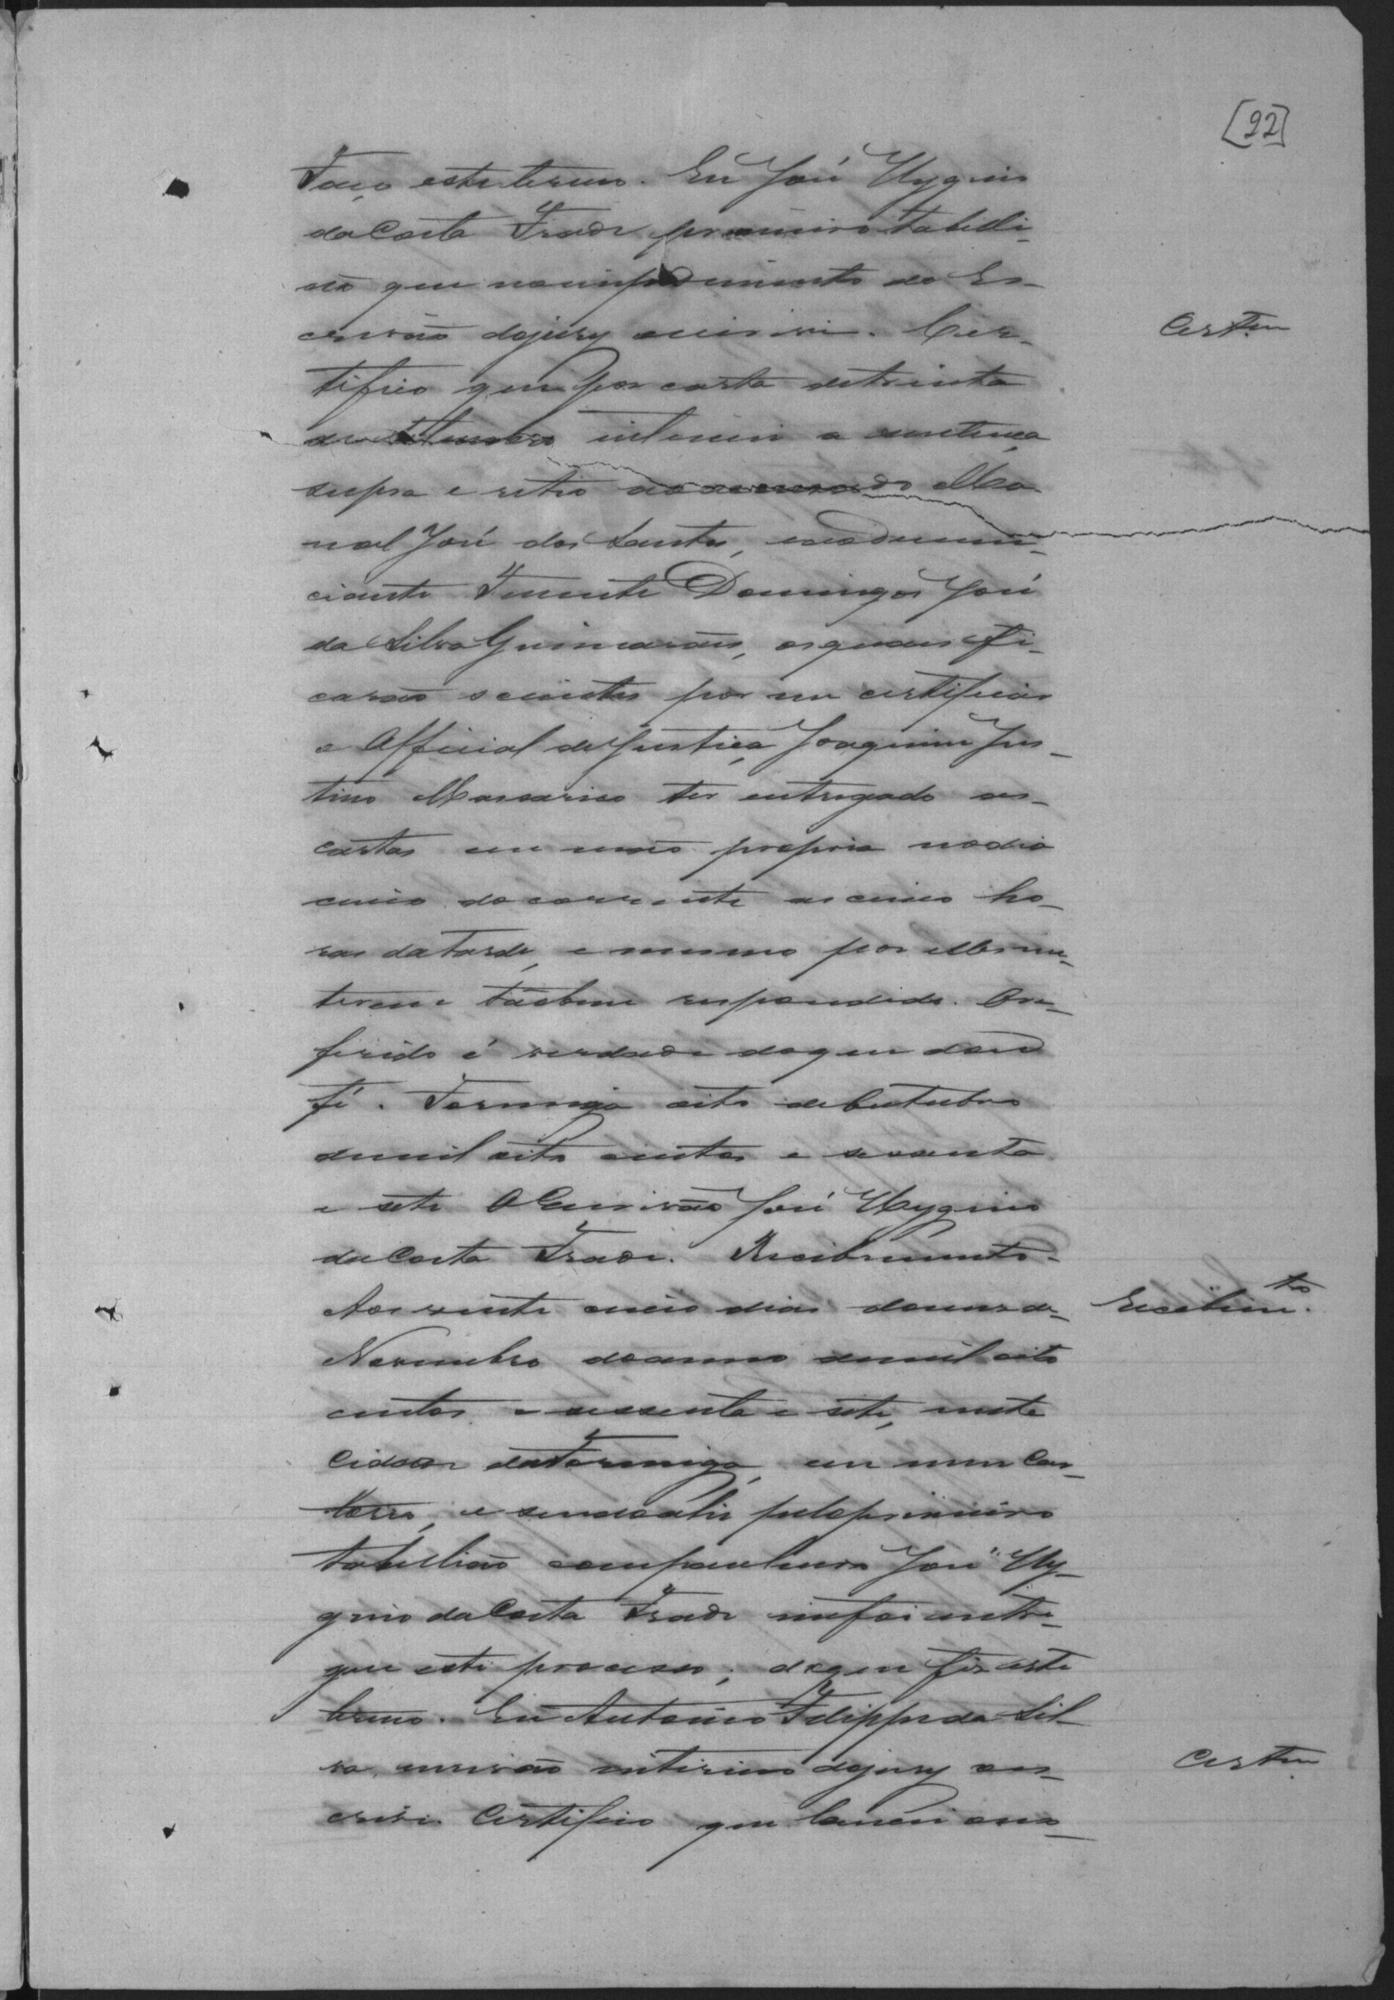 [22]
Faço este termo. Eu José Hygino
da Costa Frade primeiro tabelli-
ão que no impedimento do Es-
crivão do jury escrivi. Cer-
Certam
tifico que por carta de trinta
de Setembro intimei a sentença
supra e retro ao accusado Ma-
noel José dos Santos, e ao denun-
ciante Tenente Domingos José
da Silva Guimarães, os quaes fi-
carão scientes por me certificar
o Official de Justiça Joaquim Jus-
tino Mascarico ter entregado as
cartas em mão propria no dia
cinco do corrente as cinco ho-
ras da tarde, e mesmo por elles me
terem tãobem respondido. O re-
ferido é verdade do que dou
fé. Formiga oito de Outubro
de mil oito centos e sessenta
e sete O Escrivão José Hygino
da Costa Frade. Recebimento.
Aos vinte cinco dias do mez de
Recebim.to
Novembro do anno de mil oito
centos e sessenta e sete, nesta
Cidade da Formiga, em meu Car-
torio, e sendo ahi pelo primeiro
tabellião companheiro José Hy-
gino da Costa Frade me foi entre-
gue este processo; do que fiz este
termo. Eu Antonio Felippe da Sil-
va, escrivão interino do jury es-
Certam
crivi. Certifico que lancei o no